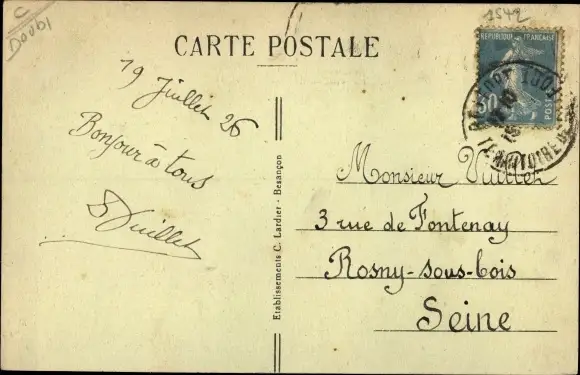 C
Doubs
1542
CARTE POSTALE
REPUBLIQUE FRANÇAISE
30
POSTES
BELFORT
19 Juillet 26
Bonjour à tous
Vuillet
Etablissements C. Lardier - Besançon
Monsieur Vuillet
3 rue de Fontenay
Rosny-sous-bois
Seine